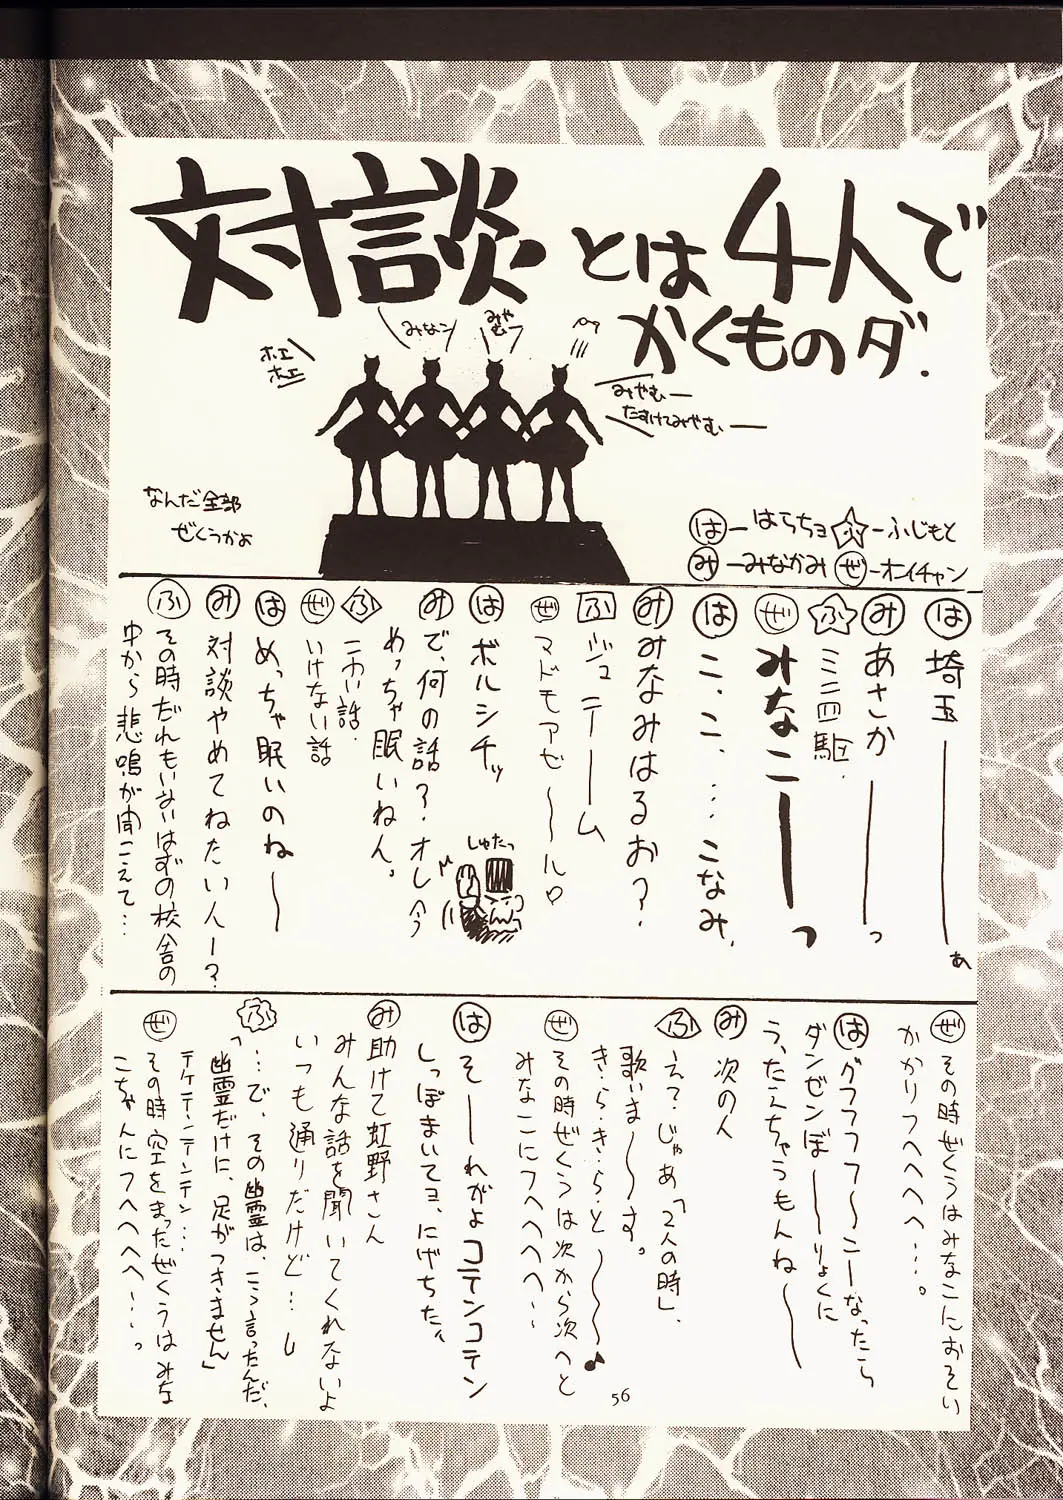 対談とは4人で
かくものダ.
ホエ
ホエ
みなこ
みや
むー
みやむー
たすけてみやむー
なんだ全部
ぜくうかよ
は－はらちョ ふ－ふじもと
み－みなかみ ぜ－オイチャン
は 埼玉――ぁ
み あさか――っ
ふ ミニ四駆.
ぜ みなこ――っ
は こ、こ、…こなみ.
み みなみはるお?
ふ ジュテーム
ぜ マドモアゼ～ル♡
は ボルシチッ
しゅたっ
み で、何の話? オレ今
めっちゃ眠いねん。
ふ こわい話.
ぜ いけない話
は めっちゃ眠いのね～
み 対談やめてねたい人ー?
ふ その時だれもいないはずの校舎の
中から悲鳴が聞こえて…
ぜ その時ぜくうはみなこにおそい
かかりフヘヘヘヘ…。
は グフフフフ～こーなったら
ダンゼンぼ――りょくに
うったえちゃうもんね～
み 次の人
ふ えっ?じゃあ「2人の時」.
歌いま～す。
き・ら・き・ら・と～♪
ぜ その時ぜくうは次から次へと
みなこにフヘヘヘヘ…
は そーれがよ コテンコテン
しっぽまいてョ、にげちた。
み 助けて虹野さん
みんな話を聞いてくれないよ
いつも通りだけど…し
ふ 「…で、その幽霊は、こう言ったんだ、
幽霊だけに、足がつきません」
テケテンテンテンテン…
ぜ その時空をまったぜくうはみな
こちゃんにフヘヘヘヘ…っ
56